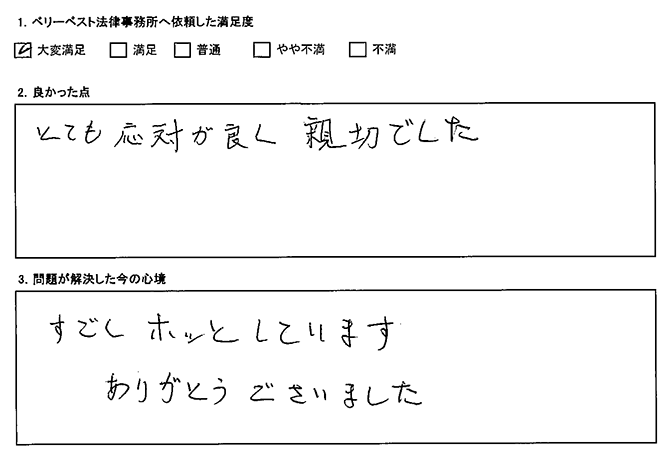 1. ベリーベスト法律事務所へ依頼した満足度
☑ 大変満足 □ 満足 □ 普通 □ やや不満 □ 不満
2. 良かった点
とても応対が良く 親切でした
3. 問題が解決した今の心境
すごく ホッと しています
ありがとう ございました